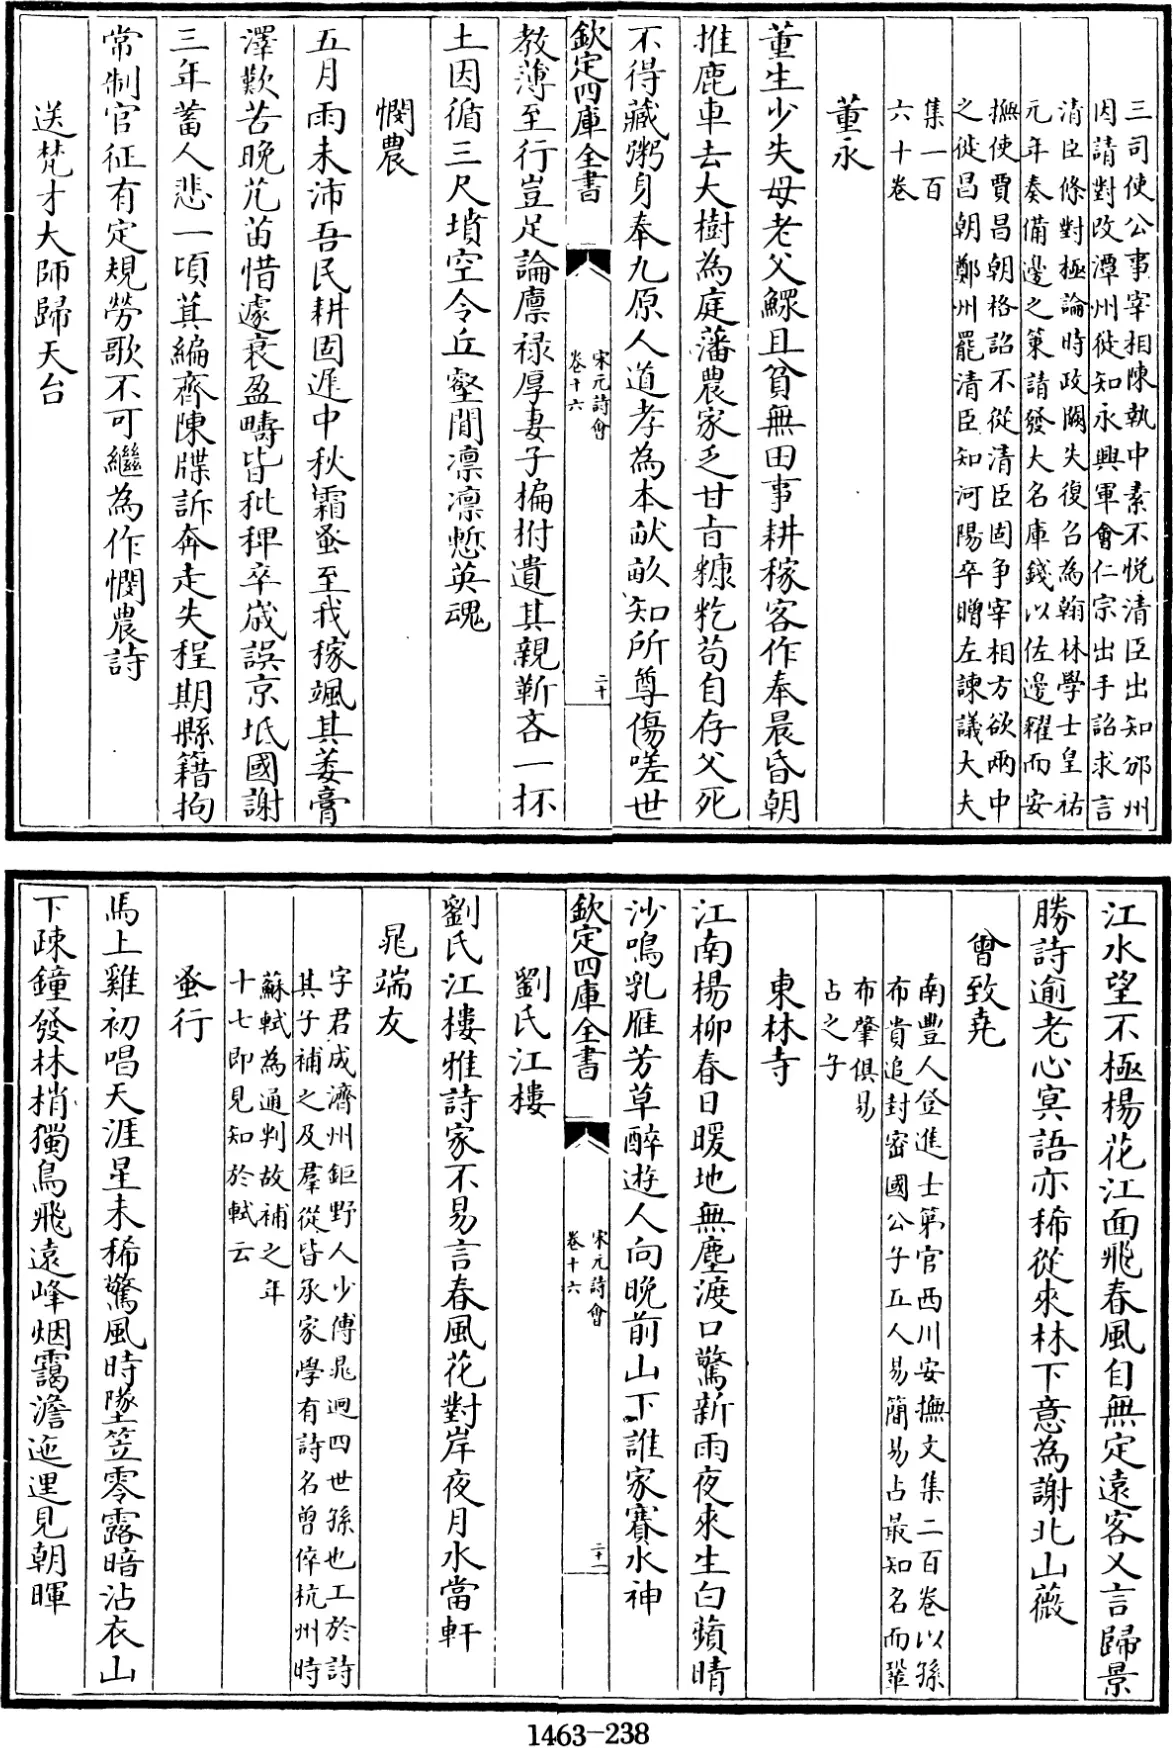 三司使公事宰相陳執中素不悅清臣出知邠州
因請對改潭州徙知永興軍會仁宗出手詔求言
清臣條對極論時政闕失復召為翰林學士皇祐
元年奏備邊之策請發大名庫錢以佐邊糴而安
撫使賈昌朝格詔不從清臣固爭宰相方欲兩中
之徙昌朝鄭州罷清臣知河陽卒贈左諫議大夫
集一百
六十卷
董永
董生少失母老父鰥且貧無田事耕稼客作奉晨昏朝
推鹿車去大樹為庭藩農家乏甘旨糠籺苟自存父死
不得藏粥身奉九原人道孝為本畎畝知所尊傷嗟世
欽定四庫全書
宋元詩會
卷十六
二十
教薄至行豈足論廪禄厚妻子楄柎遺其親靳吝一抔
土因循三尺墳空令丘壑間凛凛慙英魂
憫農
五月雨未沛吾民耕固遲中秋霜蚤至我稼颯其萎膏
澤歎苦晚芃苗惜遽衰盈疇皆秕稗卒歲誤京坻國謝
三年蓄人悲一頃萁編齊陳牒訴奔走失程期縣籍拘
常制官征有定規勞歌不可繼為作憫農詩
送梵才大師歸天台
江水望不極楊花江面飛春風自無定遠客又言歸景
勝詩逾老心冥語亦稀從來林下意為謝北山薇
曾致堯
南豐人登進士第官西川安撫文集二百卷以孫
布貴追封密國公子五人易簡易占最知名而鞏
布肇俱易
占之子
東林寺
江南楊柳春日暖地無塵渡口驚新雨夜來生白蘋晴
沙鳴乳雁芳草醉遊人向晚前山下誰家賽水神
欽定四庫全書
宋元詩會
卷十六
二十一
劉氏江樓
劉氏江樓雅詩家不易言春風花對岸夜月水當軒
晁端友
字君成濟州鉅野人少傅晁迥四世孫也工於詩
其子補之及羣從皆承家學有詩名曾倅杭州時
蘇軾為通判故補之年
十七即見知於軾云
蚤行
馬上雞初唱天涯星未稀驚風時墜笠零露暗沾衣山
下疎鐘發林梢獨鳥飛遠峰烟靄澹迤邐見朝暉
1463-238